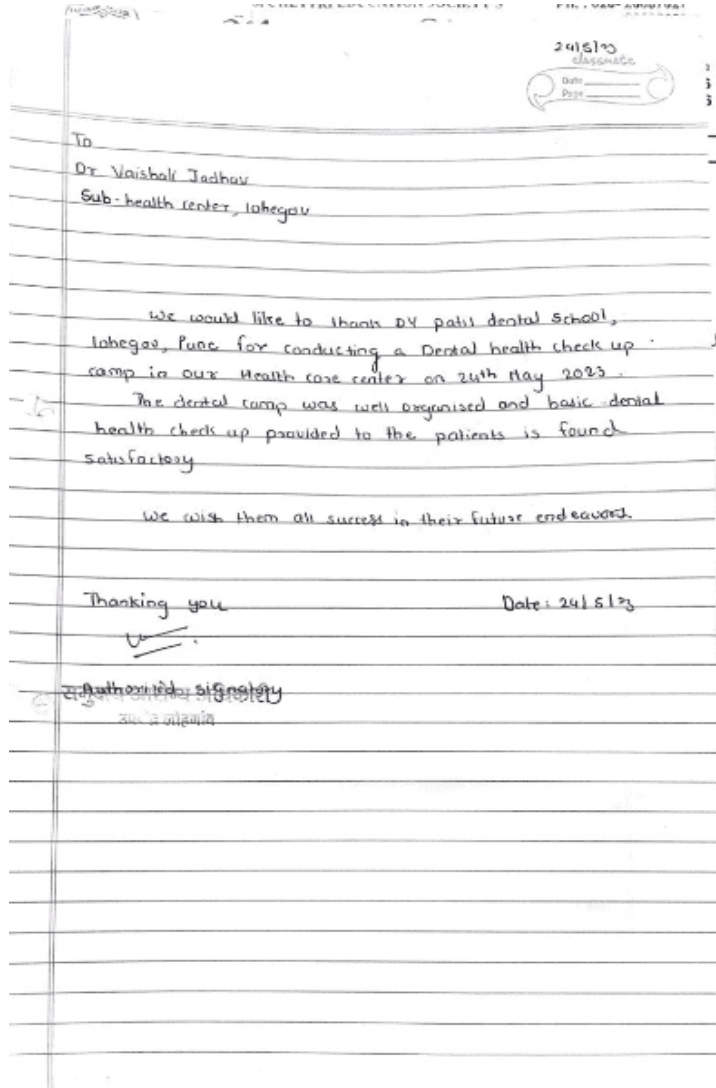 24/5/23
classmate
Date
Page
To
Dr Vaishali Jadhav
Sub-health center, lohegov
We would like to thank DY patil dental School,
lohegav, Pune for conducting a Dental health check up
camp in our Health care center on 24th May 2023.
The dental camp was well organised and basic dental
health check up provided to the patients is found
satisfactory
We wish them all success in their future endeavors.
Thanking you
Date: 24/5/23
Authorized signatory
समुदाय आरोग्य अधिकारी
लोहगांव